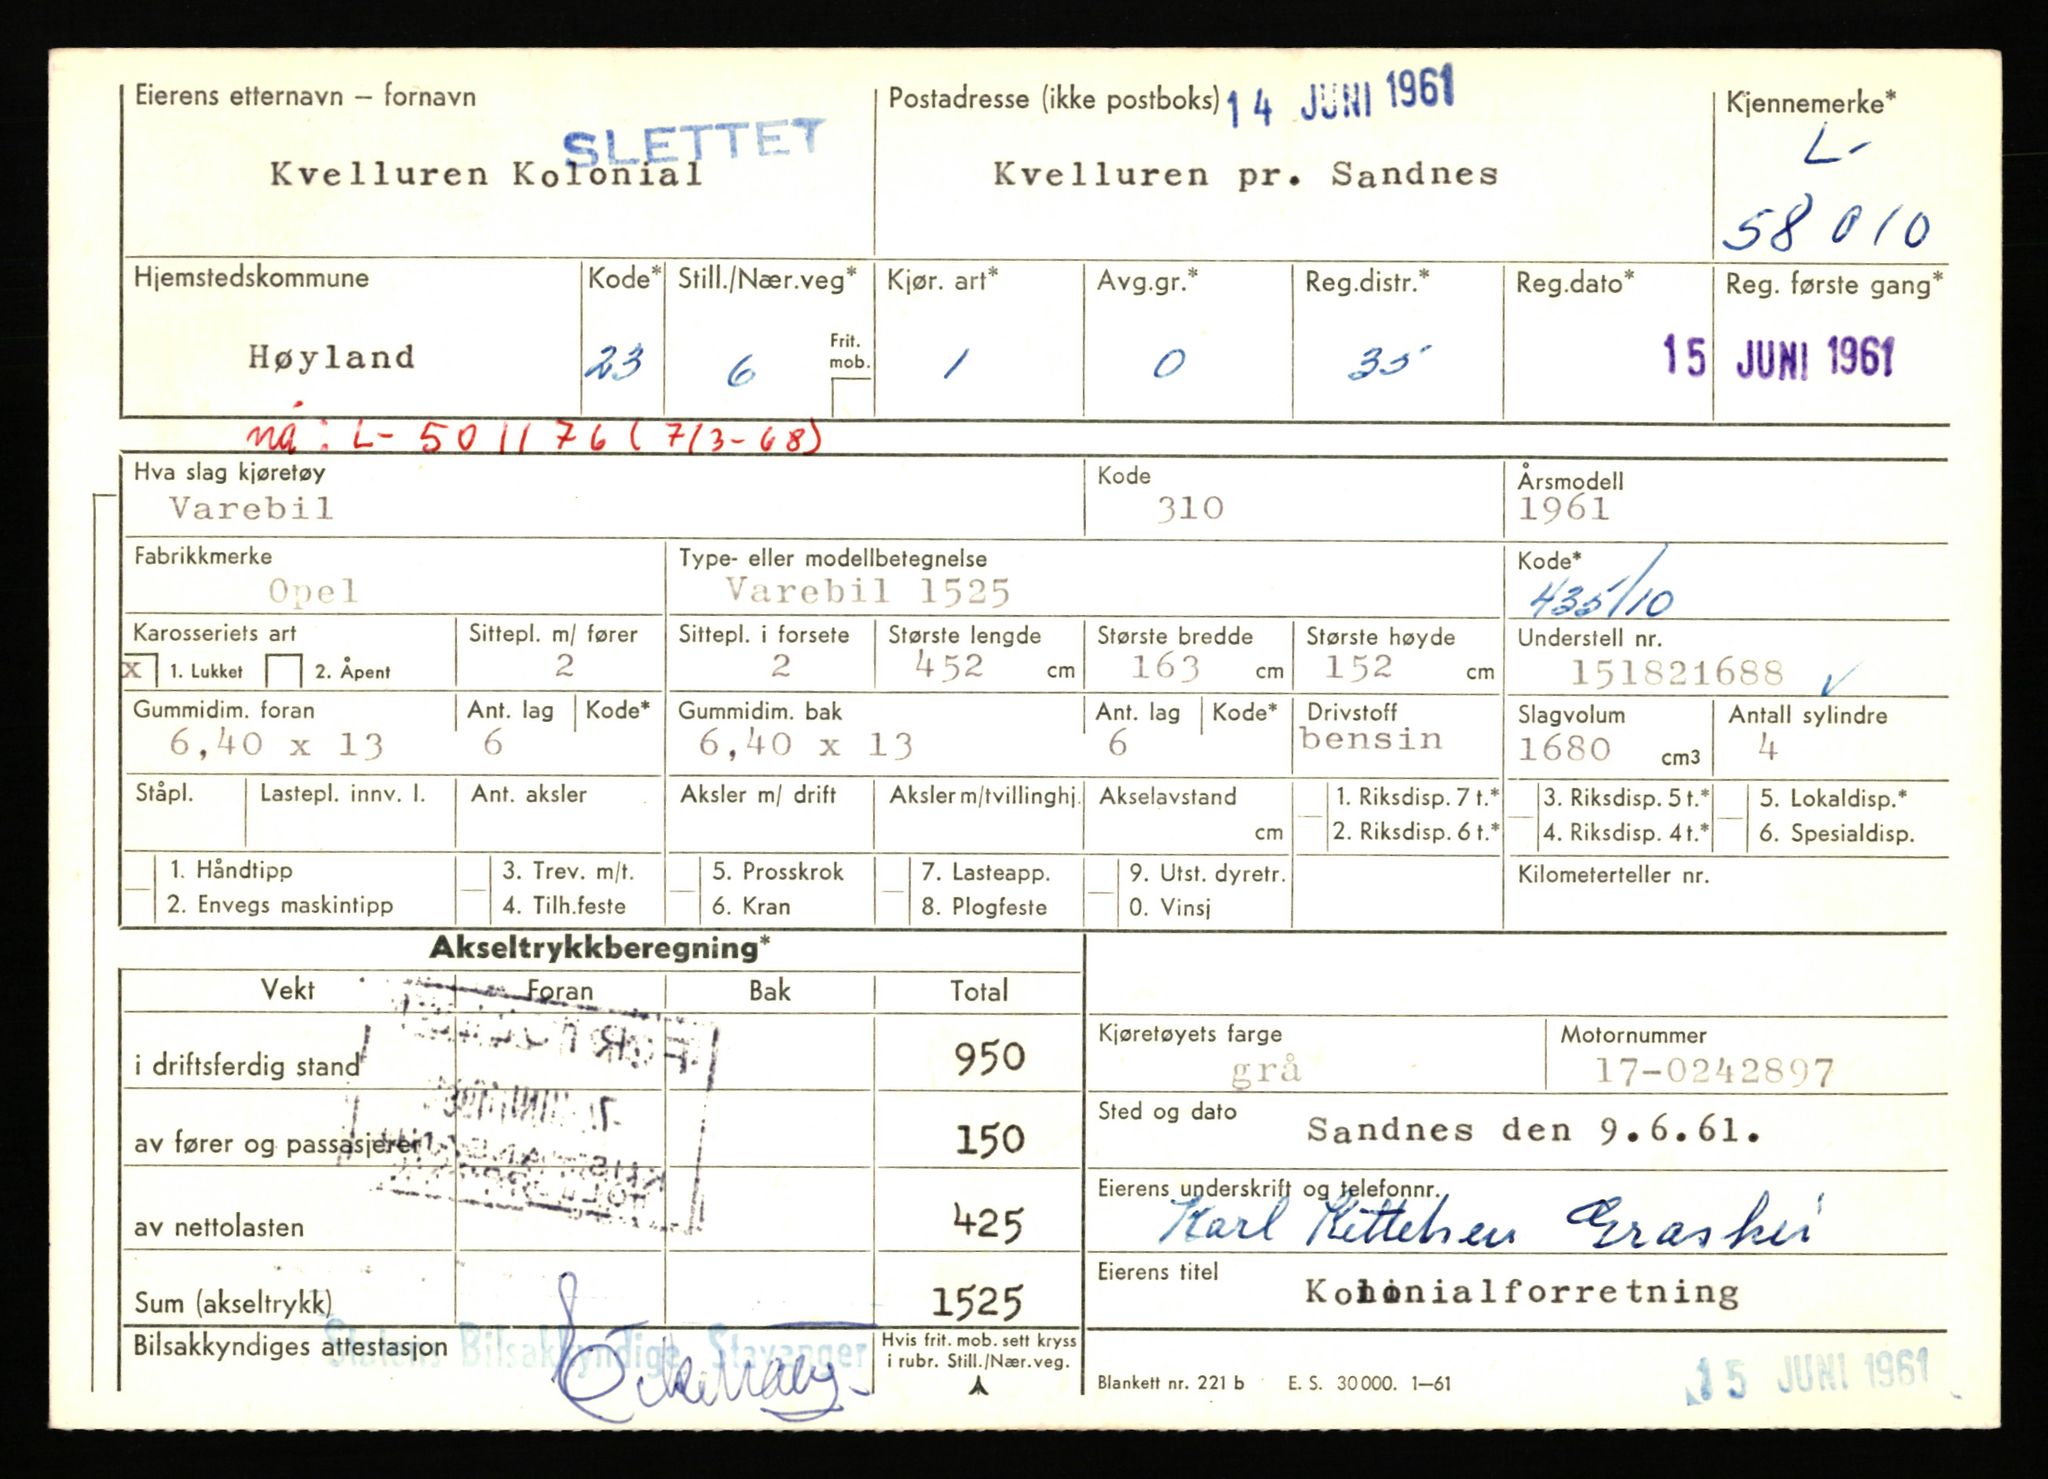 Eierens etternavn – fornavn
Postadresse (ikke postboks)
14 JUNI 1961
Kjennemerke*
SLETTET
L-
Kvelluren Kolonial
Kvelluren pr. Sandnes
58010
Hjemstedskommune
Kode*
Still./Nær.veg*
Kjør. art*
Avg.gr.*
Reg.distr.*
Reg.dato*
Reg. første gang*
Frit. mob.
Høyland
23
6
1
0
35
15 JUNI 1961
nå: L- 501176 (7/3-68)
Hva slag kjøretøy
Kode
Årsmodell
Varebil
310
1961
Fabrikkmerke
Type- eller modellbetegnelse
Kode*
Opel
Varebil 1525
435/10
Karosseriets art
Sittepl. m/ fører
Sittepl. i forsete
Største lengde
Største bredde
Største høyde
Understell nr.
x 1. Lukket 2. Åpent
2
2
452 cm
163 cm
152 cm
151821688
Gummidim. foran
Ant. lag
Kode*
Gummidim. bak
Ant. lag
Kode*
Drivstoff
Slagvolum
Antall sylindre
6,40 x 13
6
6,40 x 13
6
bensin
1680 cm3
4
Ståpl.
Lastepl. innv. l.
Ant. aksler
Aksler m/ drift
Aksler m/tvillinghj.
Akselavstand
cm
1. Riksdisp. 7 t.*
2. Riksdisp. 6 t.*
3. Riksdisp. 5 t.*
4. Riksdisp. 4 t.*
5. Lokaldisp.*
6. Spesialdisp.
1. Håndtipp
2. Envegs maskintipp
3. Trev. m/t.
4. Tilh.feste
5. Prosskrok
6. Kran
7. Lasteapp.
8. Plogfeste
9. Utst. dyretr.
0. Vinsj
Kilometerteller nr.
Akseltrykkberegning*
Vekt
Foran
Bak
Total
i driftsferdig stand
950
av fører og passasjerer
150
av nettolasten
425
Sum (akseltrykk)
1525
Kjøretøyets farge
Motornummer
grå
17-0242897
Sted og dato
Sandnes den 9.6.61.
Eierens underskrift og telefonnr.
Karl Kittelsen
Eierens titel
Kolonialforretning
Bilsakkyndiges attestasjon
Statens Bilsakkyndige Stavanger
Hvis frit. mob. sett kryss
i rubr. Still./Nær.veg.
Blankett nr. 221 b E. S. 30000. 1–61
15 JUNI 1961